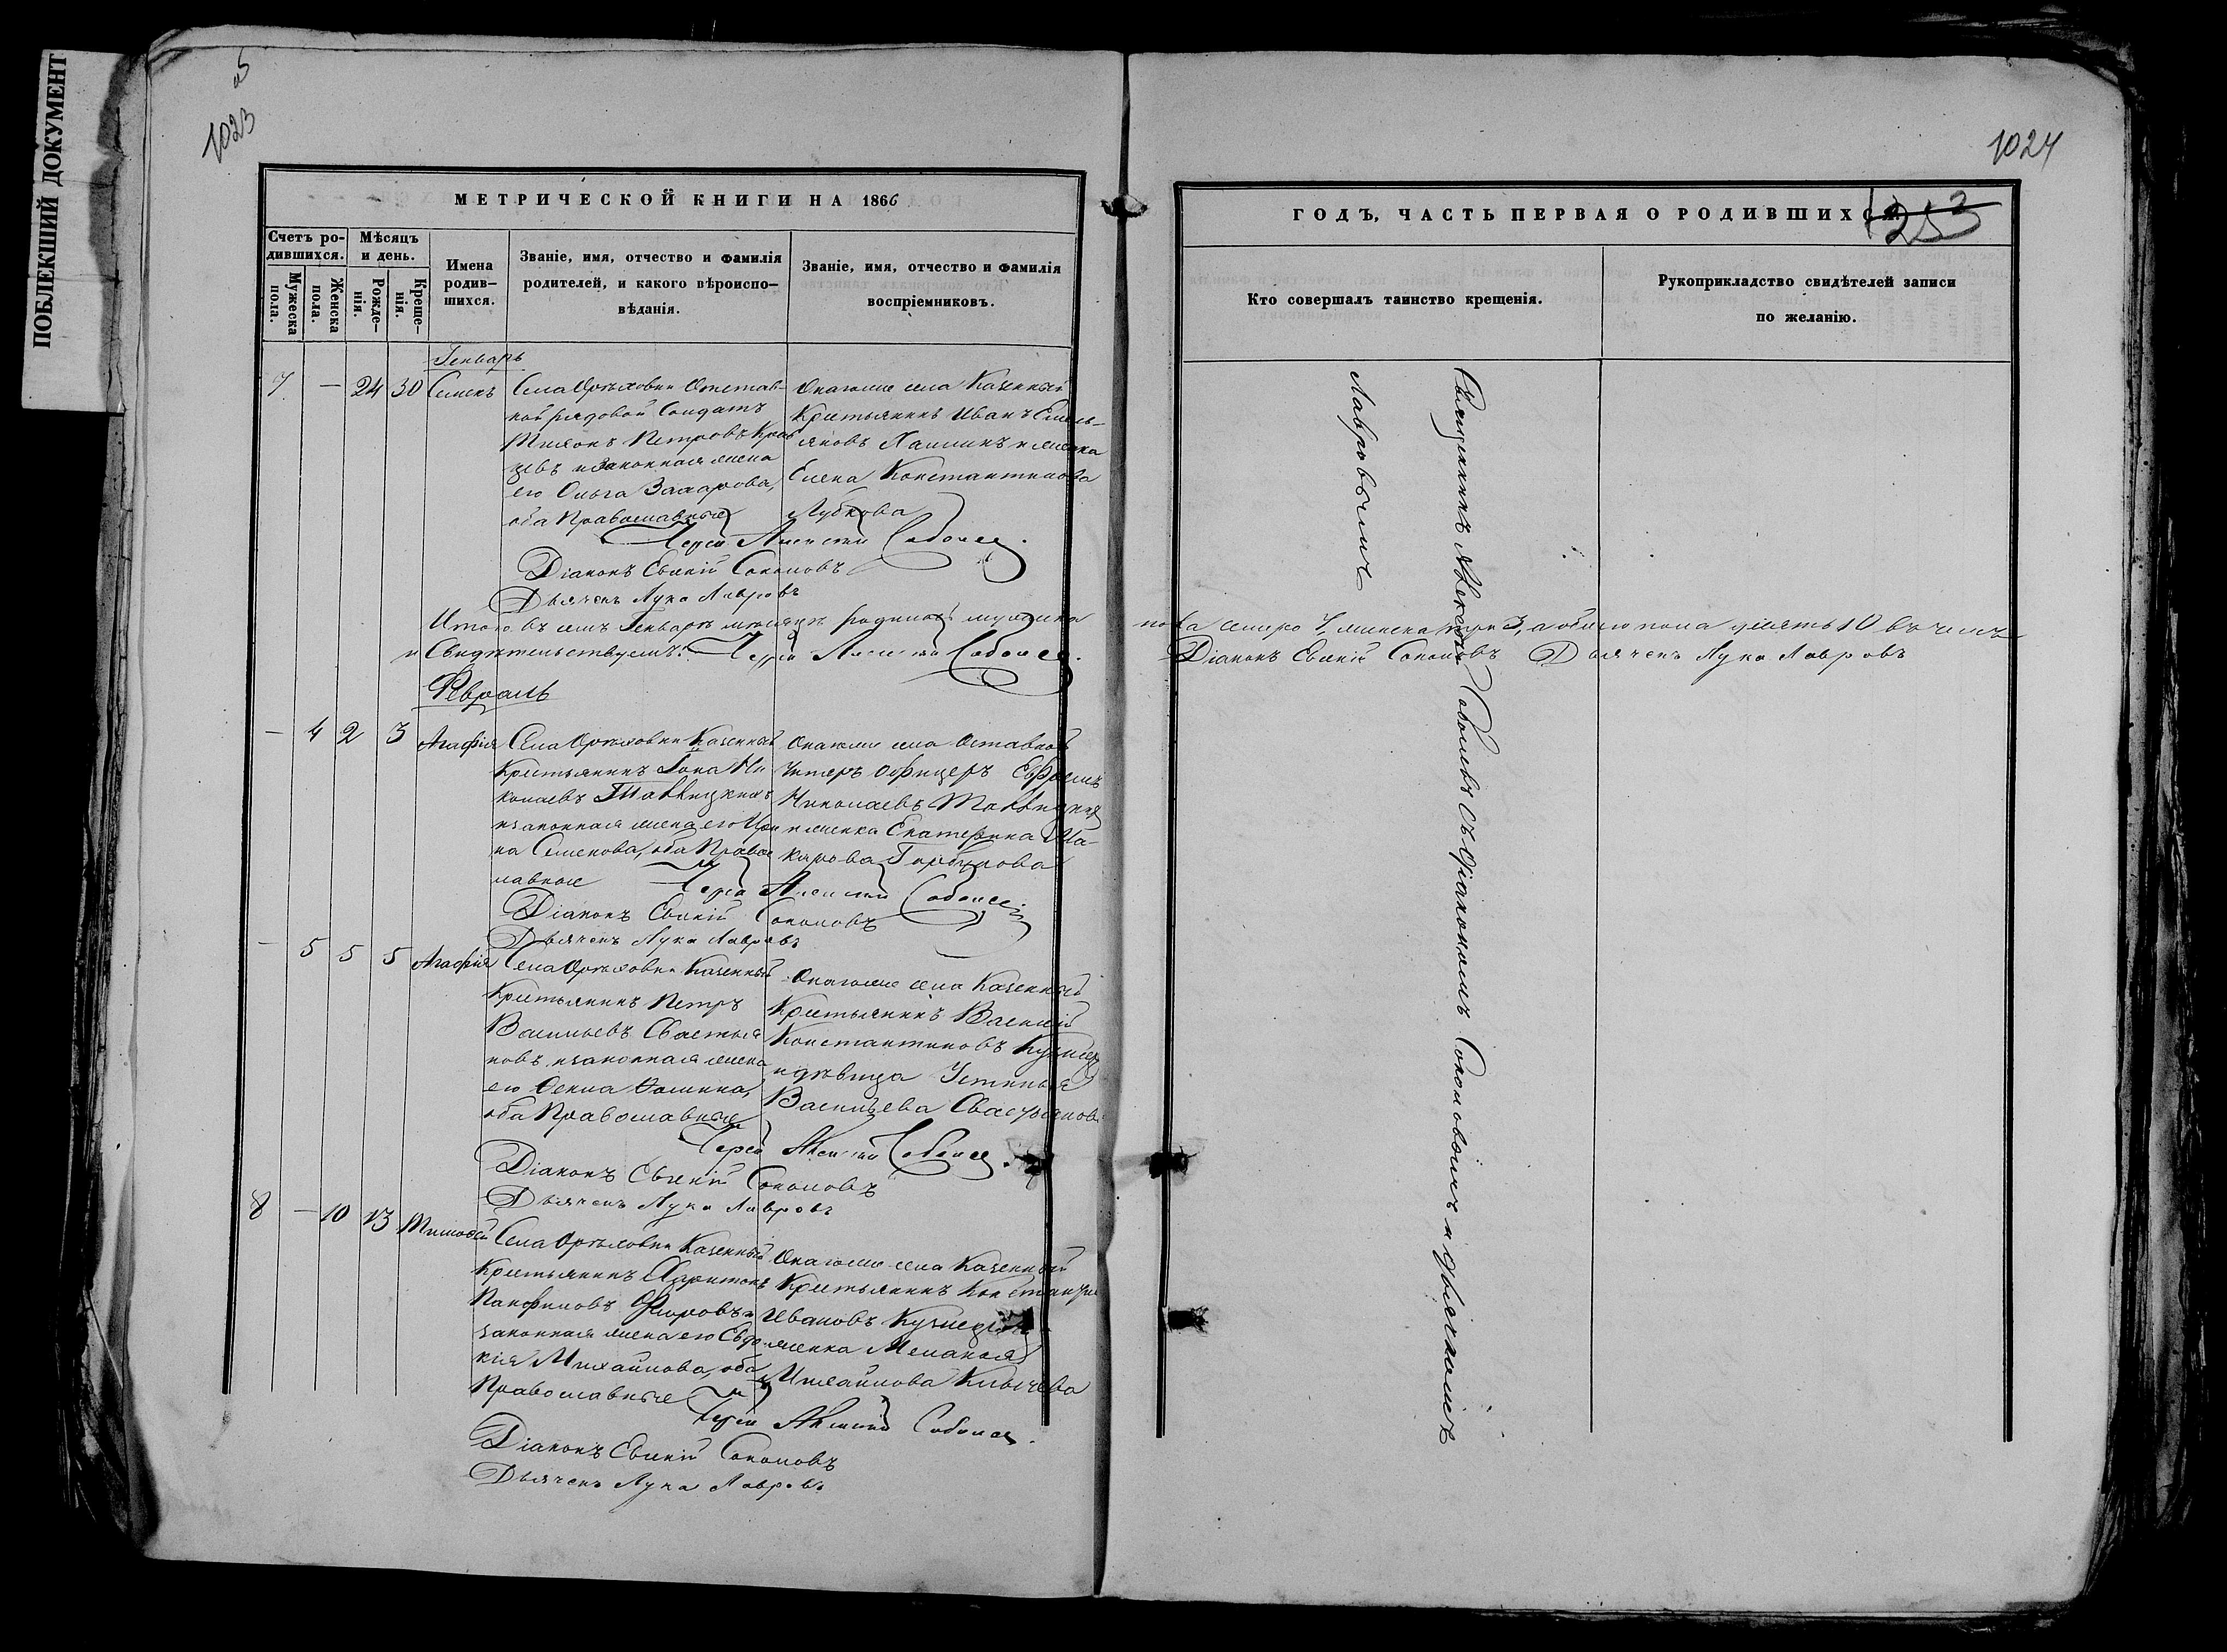 ПОБЛЕКШИЙ ДОКУМЕНТ
1023
МЕТРИЧЕСКОЙ КНИГИ НА 1866
Счетъ ро-
дившихся.
Мужеска
пола.
Женска
пола.
Мѣсяцъ
и день.
Рожде-
нія.
Креще-
нія.
Имена
родив-
шихся.
Званіе, имя, отчество и фамилія
родителей, и какого вѣроиспо-
вѣданія.
Званіе, имя, отчество и фамилія
воспріемниковъ.
Генварь
7 — 24 30 Семенъ
Села Орѣховки Отстав-
ной рядовой Солдатъ
Петровъ
и законная жена
его Ольга Захарова,
оба Православные
Онагоже села Казенный
Крестьянинъ Иванъ Емель-
яновъ и женка
Елена Константинова
Лубкова
Іерей Алексій Соболев.
Діаконъ Евсикій Соколовъ
Дьячекъ Лука Лавровъ
Итого въ семъ Генварѣ мѣсяцѣ родилось мужеска
и Свидѣтельствуемъ: Іерей Алексій Соболев.
Февраль
— 4 2 3 Агафія
Села Орѣховки Казенный
Крестьянинъ Іона Ни
колаевъ
и законная жена его Ири
на Семенова, оба Правос
лавные
Онагоже села Оставной
Унтеръ Офицеръ Ефремъ
Николаевъ
и женка Екатерина Ма-
карова Горбунова
Іерей Алексій Соболев.
Діаконъ Евсикій Соколовъ
Дьячекъ Лука Лавровъ
— 5 5 5 Агафія
Села Орѣховки Казенный
Крестьянинъ Петръ
Васильевъ Свастья
новъ и законная жена
его Фомина,
оба Православные
Онагоже села Казенный
Крестьянинъ Василій
Константиновъ Кузнец
и дѣвица Устинья
Васильева Свастьянов
Іерей Алексій Соболев.
Діаконъ Евсикій Соколовъ
Дьячекъ Лука Лавровъ
8 — 10 13 Тимофей
Села Орѣховки Казенный
Крестьянинъ Харитонъ
Панфиловъ Фроловъ и
законная жена его Евдо
кія Михайлова, оба
Православные
Онагоже села Казенный
Крестьянинъ Константин
Ивановъ Кузнецов
женка Меланья
Михайлова Клычева
Іерей Алексій Соболев.
Діаконъ Евсикій Соколовъ
Дьячекъ Лука Лавровъ
1024
ГОДЪ, ЧАСТЬ ПЕРВАЯ О РОДИВШИХСЯ
253
Кто совершалъ таинство крещенія.
Рукоприкладство свидѣтелей записи
по желанію.
Священникъ Алексѣй Соболевъ съ Діакономъ Соколовымъ и дьячкомъ
Лавровымъ
пола семеро 7, женска три 3, а обоего пола десять 10 въ чемъ
Діаконъ Евсикій Соколовъ Дьячекъ Лука Лавровъ